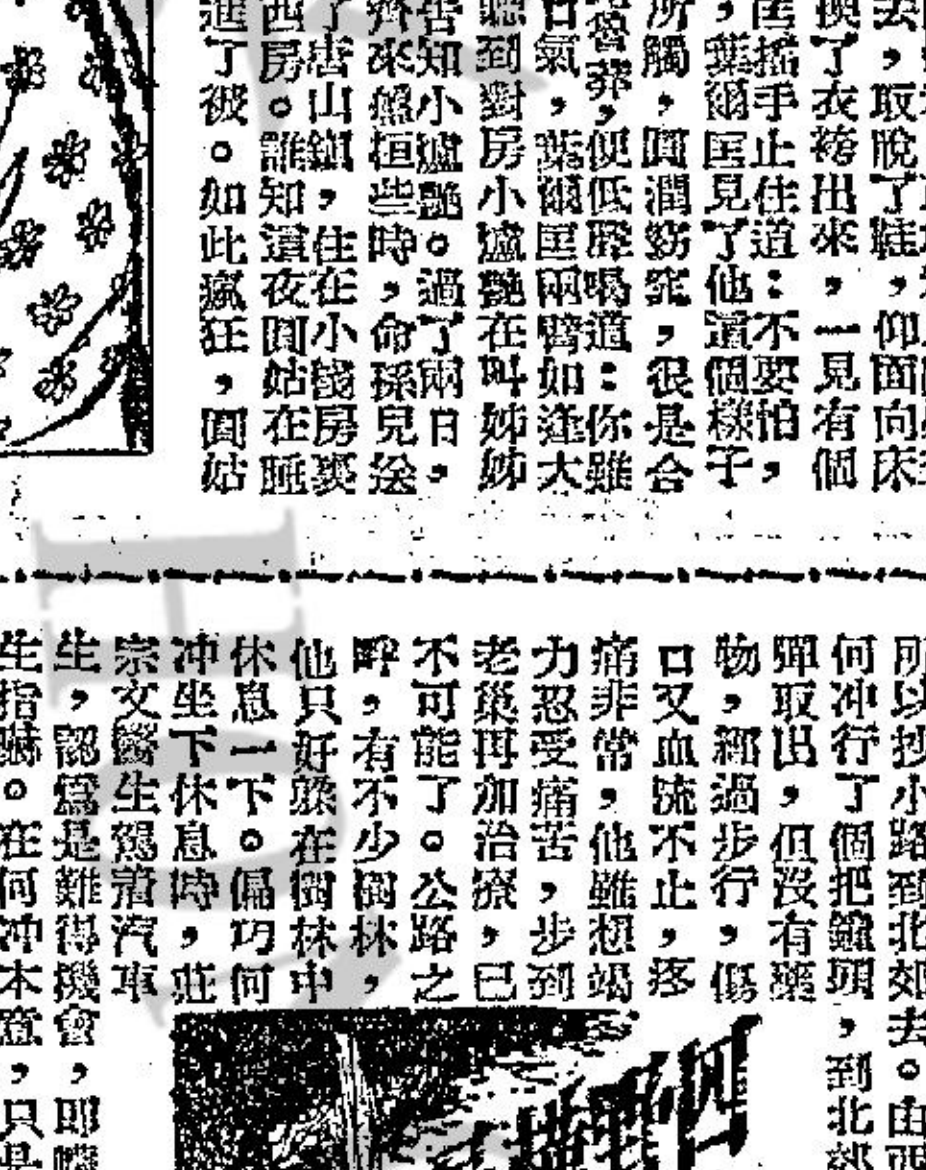 去，取脫了鞋，仰面向床
換了衣袴出來，一見有個
匡搖手止住道：不要怕，
，葉爾匡見了他這個樣子
所觸，圓潤豹，很是合
便低聲喝道：你雖
口氣，葉爾匡兩臂如逢大
聽到對房小爐艷在叫姊姊
告知小爐艷。過了兩日，
齊來盤桓些時，命孫兒送
了唐山鎮，住在小錢房裏
西房。誰知這夜圓姑在睡
進了被。如此瘋狂，圓姑
所以抄小路到北郊去。由西
何冲行了個把鐘頭，到北郊
彈取出，但沒有藥
物，經過步行，傷
口又血流不止，疼
痛非常，他雖想竭
力忍受痛苦，步到
老巢再加治療，已
不可能了。公路之
畔，有不少樹林，
他只好躲在樹林中
休息一下。偏巧何
冲坐下休息時，莊
宗文醫生駕着汽車
生，認爲是難得機會，即
生指嚇。在何冲本意，只是
四